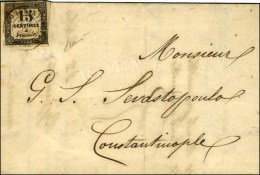 15
CENTIMES
à
percevoir
Monsieur
G. S. Sevastopoulo
Constantinople